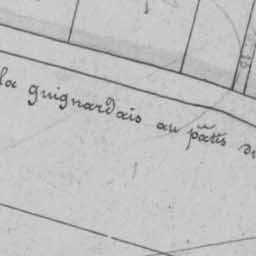 la guignardais au pâtis du